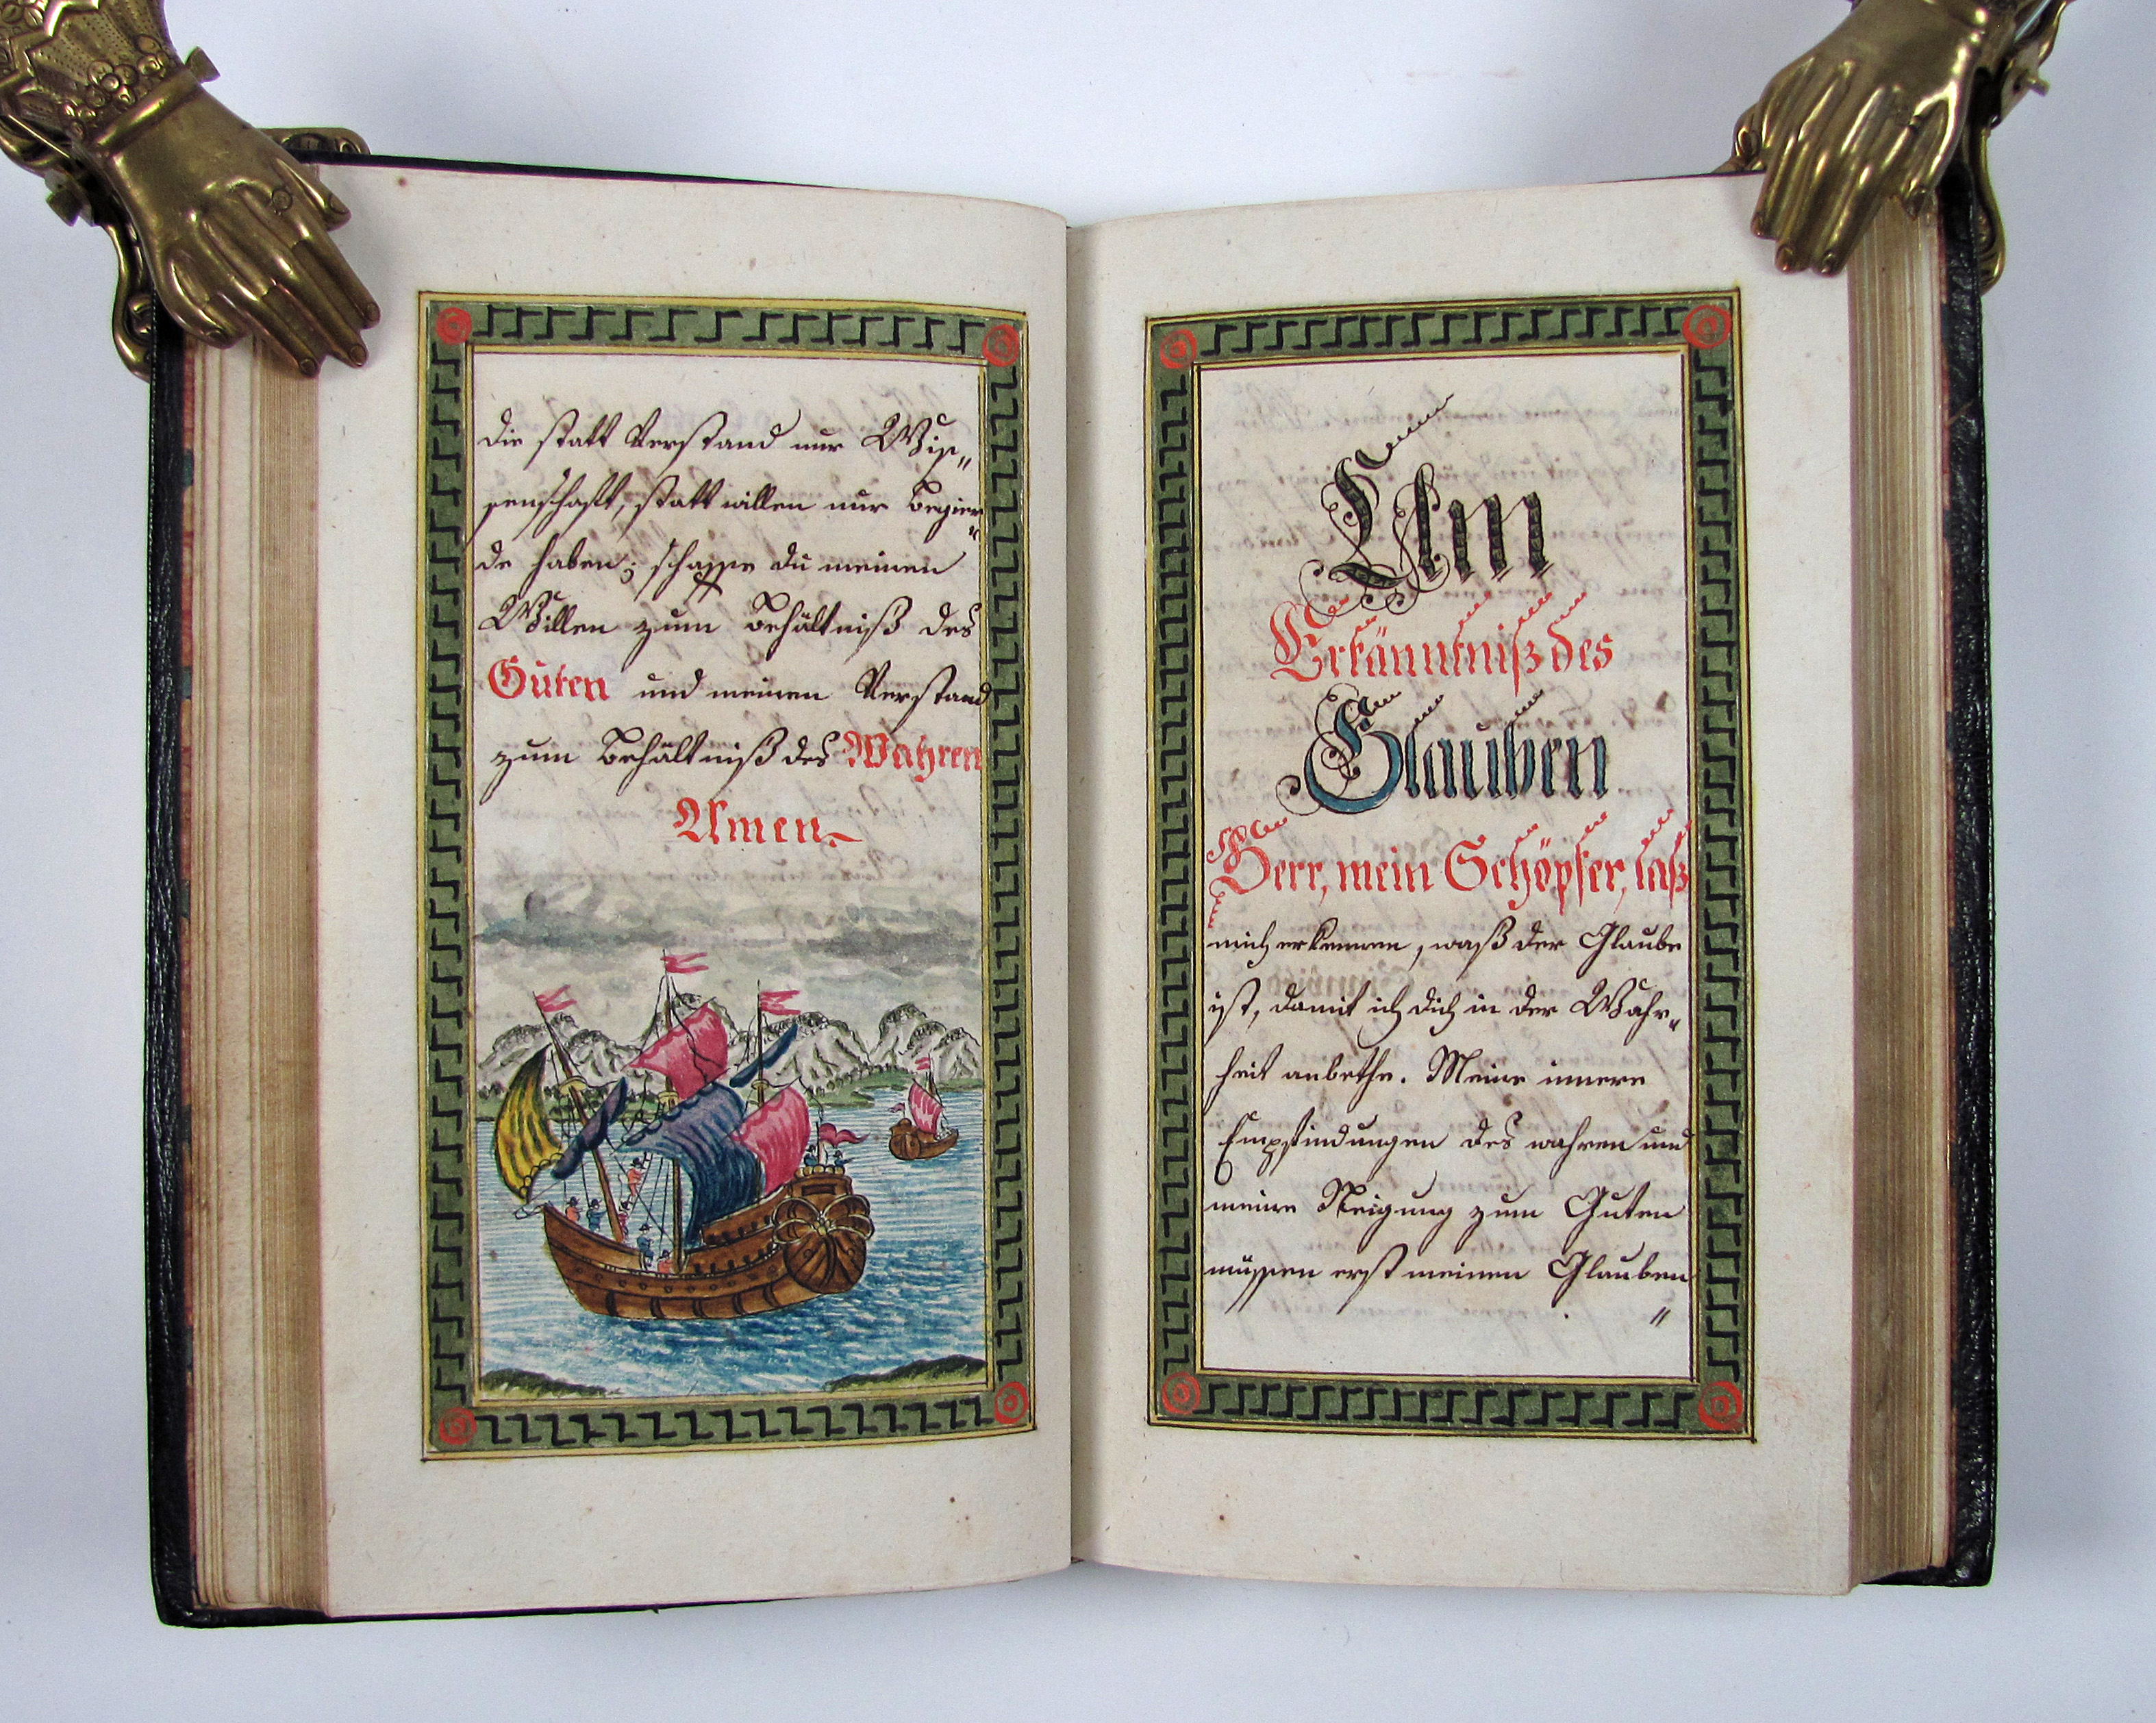 die statt Verstand nur Wis„
senschaft, statt willen nur Begier„
de haben; schaffe du meinen
Willen zum Behältniß des
Guten und meinen Verstand
zum Behältniß des Wahren
Amen.
Um
Erkänntniß des
Glauben
Herr, mein Schöpfer, laß
mich erkennen, waß der Glaube
ist, damit ich dich in der Wahr„
heit anbethe. Meine innere
Empfindungen des wahren und
meine Neigung zum Guten
müssen erst meinen Glauben
„